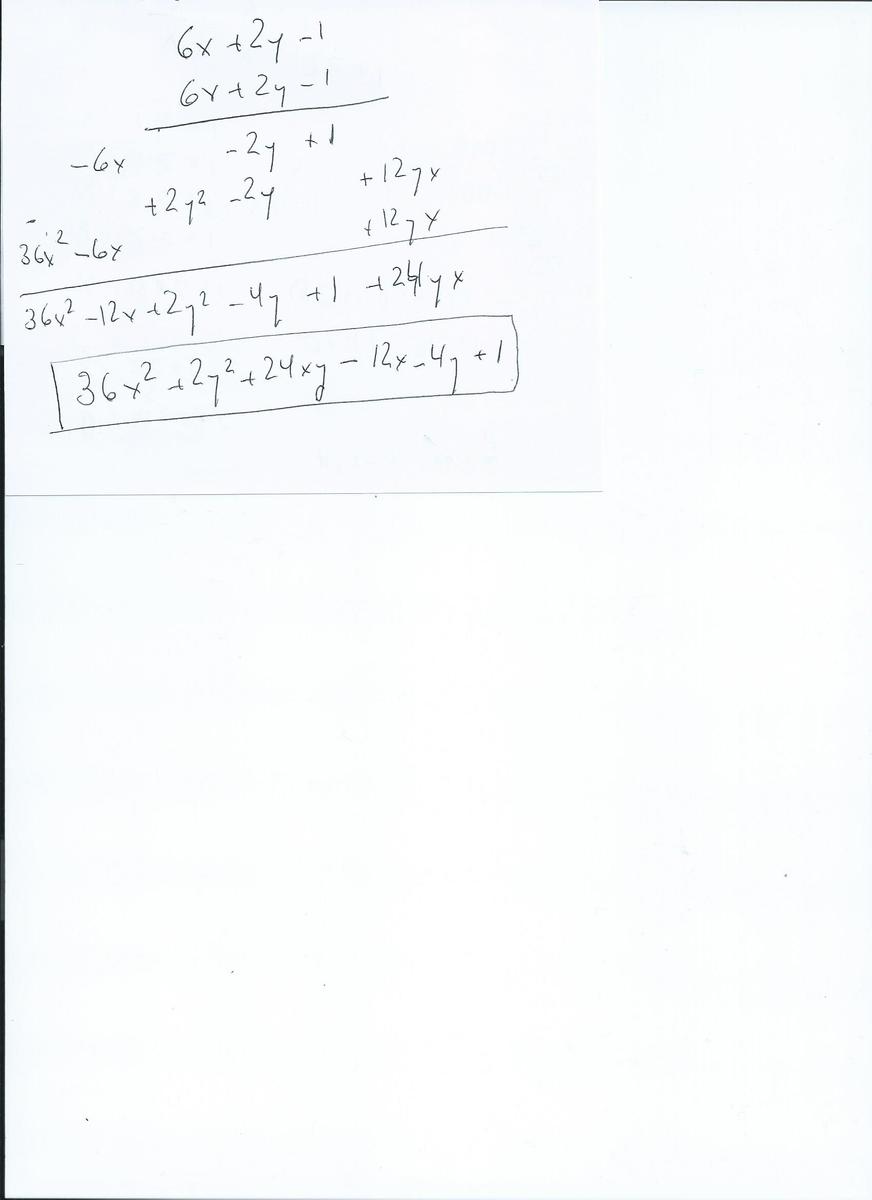 6x +2y -1
6x +2y -1
-6x -2y +1
+2y² -2y +12yx
36x² -6x +12yx
36x² -12x +2y² -4y +1 +24yx
36x² +2y² +24xy - 12x -4y +1